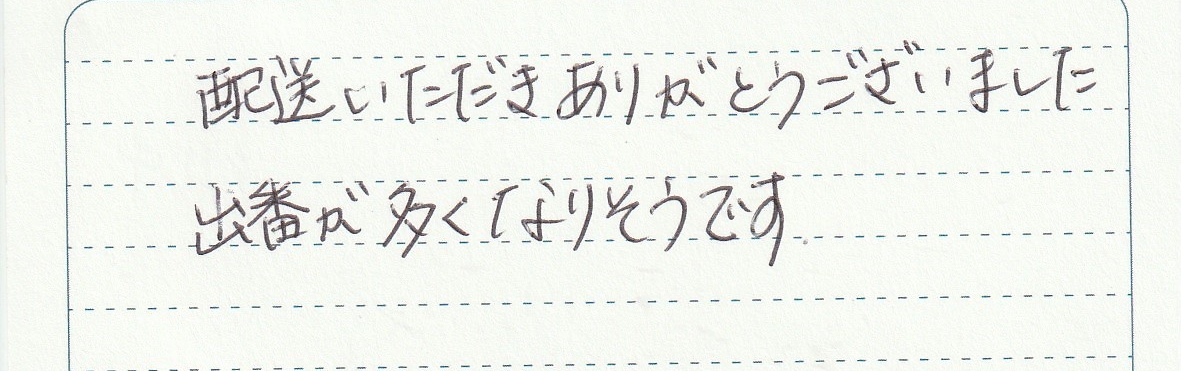 配送いただきありがとうございました
出番が多くなりそうです